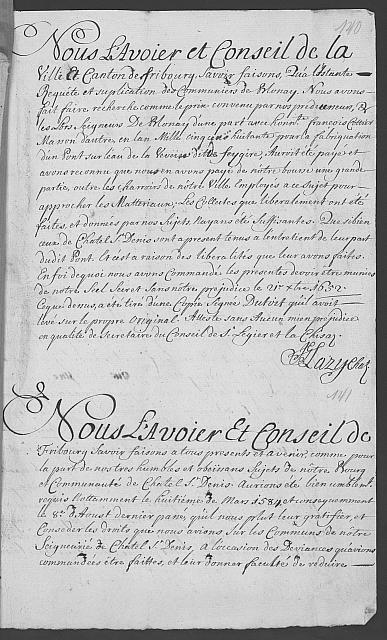 140
Nous L'Avoier et Conseil de la
Ville et Canton de fribourg, Savoir faisons, Qu'a L'Instante
Requéte et suplication des Communiers de Blonay. Nous avons
fait faire recherche comme le prix convenu par nos prédecesseurs, et
les Nors. Seigneurs De Blonay d'une part, avec honore. francois Cottier
Masson d'autre, en l'an Mille cinq cens huitante pour la fabriquation
d'un Pont sur l'eau de la Veveise ditte feygire, Auroit été payé et
avons reconnu que nous en avons payé de nôtre bourse une grande
partie, outre les charrois de nôtre Ville Employés a ce sujet pour
approcher les Matteriaux; Les Collectes que liberalement ont été
faites, et données par nos Sujets Payans été Suffisantes. Que si bien
ceux de Chatel St. Denis sont a present tenus a l'entretient de leur part
dudit Pont. C'est a raison des liberalités que leur avons faites.
En foi de quoi nous avons Commandé les presentes devoir être munies
de nôtre Seel Secret Sans nôtre préjudice le 21e. Xbre 1632.
Ce que dessus, a été tiré d'une Copie Signée Dutoit qui l'avoit
levé sur le propre Original. Atteste sans Aucun mien préjudice
en qualité de Secretaire du Conseil de St. Legier et La Chiesaz
141
Nous L'Avoier Et Conseil de
Fribourg Savoir faisons a tous presents et avenir, comme pour
la part de nos tres humbles et obeissans Sujets de nôtre Bourg
et Communauté de Chatel St. Denis. Aurions été bien humblement
requis Nottamment le huitième de Mars 1584 et consequemment
le 8e. d'Aoust dernier passé, qu'il nous plut leur gratifier, et
Conseder les droits que nous avions sur les Communs de nôtre
Seigneurie de Chatel St. Denis, a l'occasion des Deviances qu'avions
commandées être faittes, et leur donner faculté de réduire